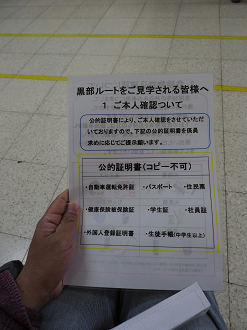 黒部ルートをご見学される皆様へ
1 ご本人確認ついて
公的証明書により、ご本人確認をさせていただ
いておりますので、下記の公的証明書を係員
求めに応じてご提示願います。
公的証明書(コピー不可)
・自動車運転免許証 ・パスポート ・住民票
・健康保険被保険証 ・学生証 ・社員証
・外国人登録証明書 ・生徒手帳(中学生以上)